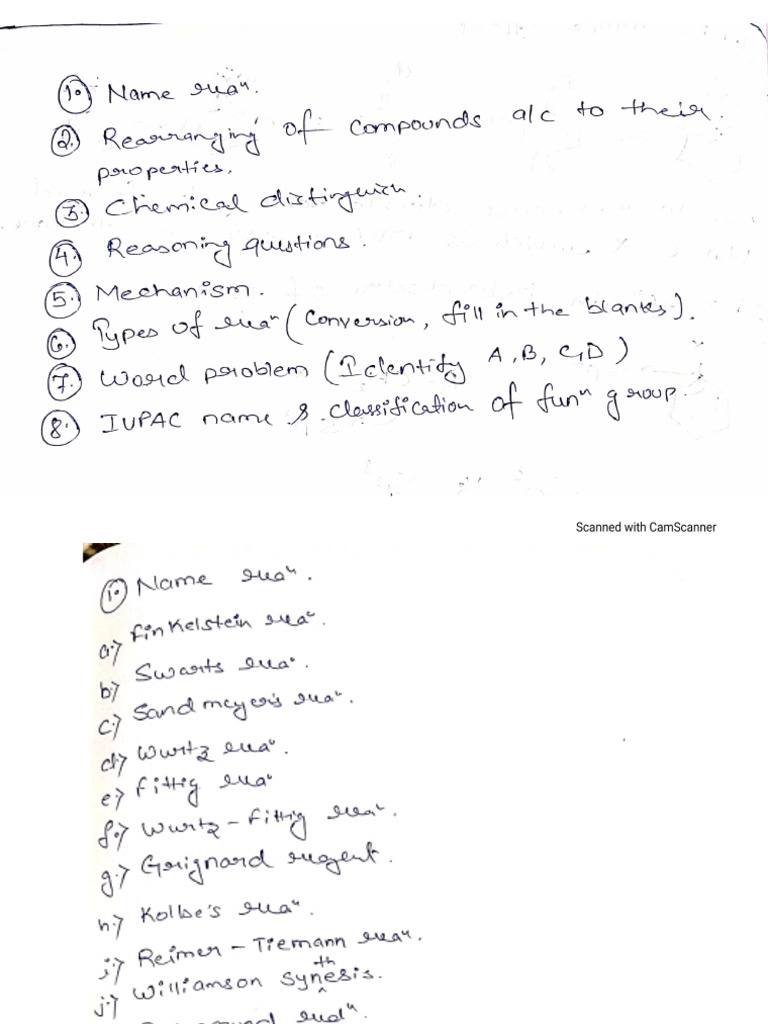 1. Name rxaⁿ.
2. Rearranging of compounds a/c to their
properties.
3. Chemical distinguish.
4. Reasoning questions.
5. Mechanism.
6. Types of rxaⁿ (Conversion, fill in the blanks).
7. Word problem (Identity A, B, C, D)
8. IUPAC name & classification of funⁿ group.
Scanned with CamScanner
1. Name reaⁿ.
a) Finkelstein reaⁿ.
b) Swarts reaⁿ.
c) Sandmeyer's reaⁿ.
d) Wurtz reaⁿ.
e) Fittig reaⁿ
f) Wurtz - Fittig reaⁿ.
g) Grignard reagent.
h) Kolbe's reaⁿ.
i) Reimer - Tiemann reaⁿ.
j) Williamson synthesis.